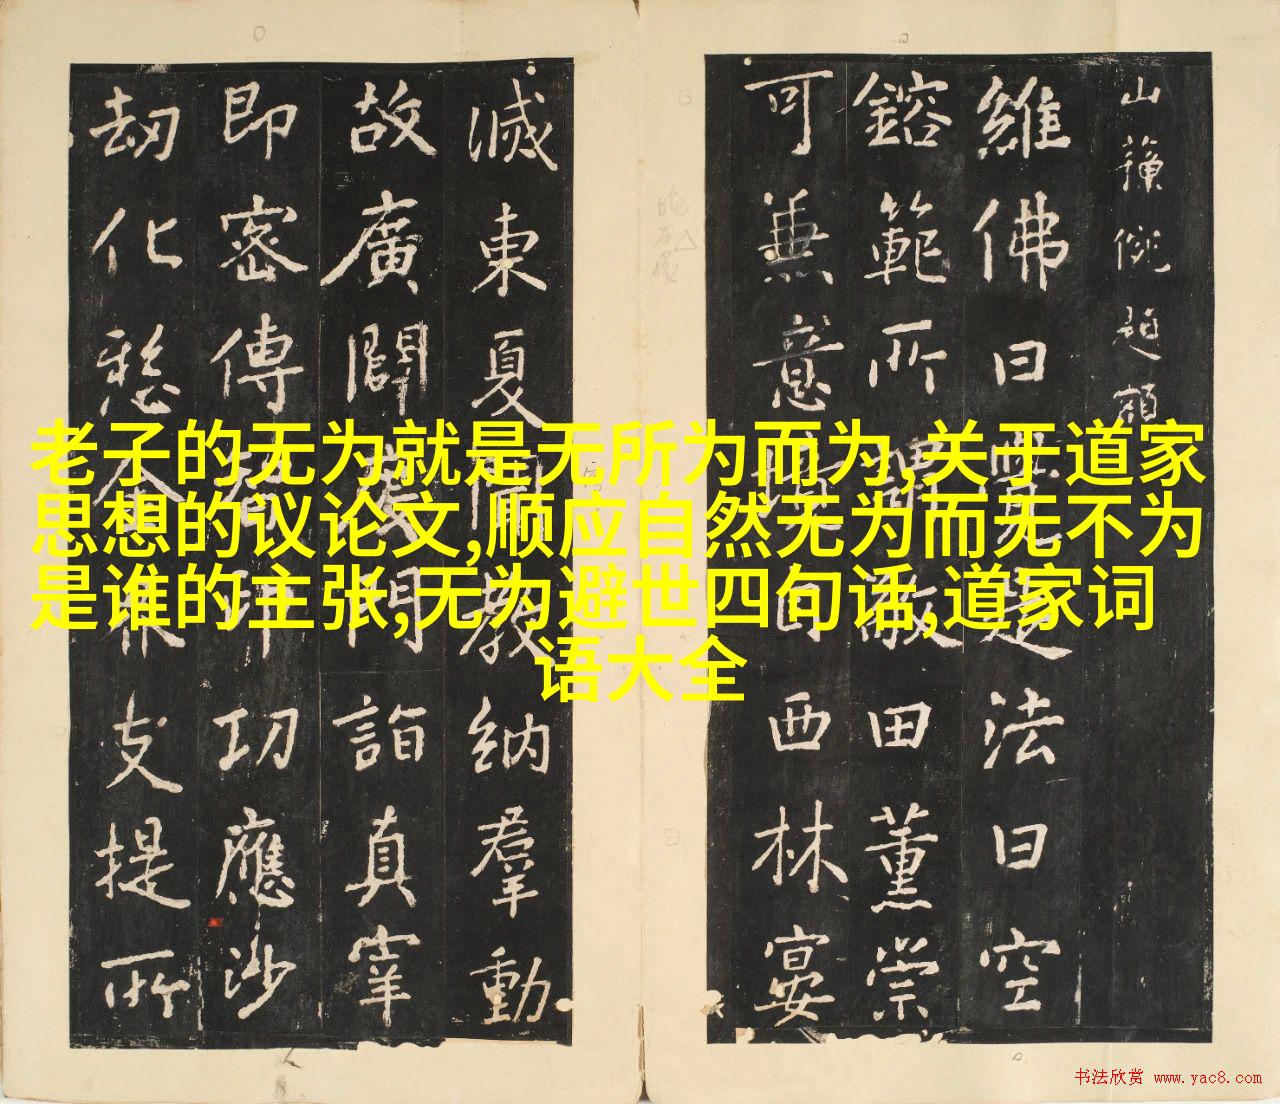 老子的无为就是无所为而为,关于道家
思想的议论文,顺应自然无为而无不为
是谁的主张,无为避世四句话,道家词
语大全
山
維佛曰是法曰空
鎔範所田薰崇
可兼意百西林宴
滅東夏教納羣動
故廣闢門詣真宰
即密傳印功應沙
劫化愁支提所
书法欣赏 www.yac8.com